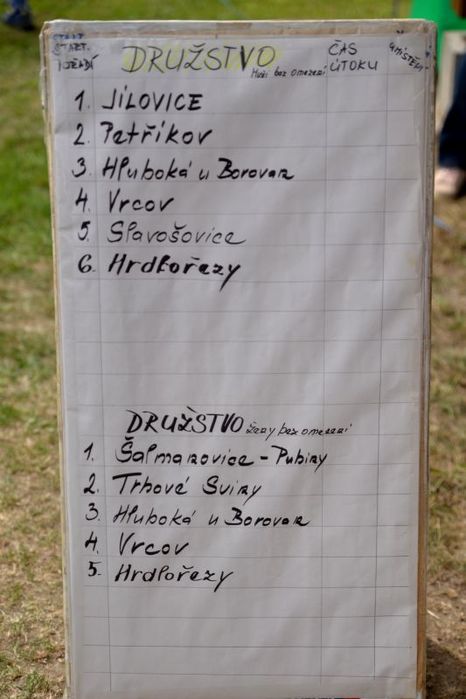 START. DRUŽSTVO Muži bez omezení ČAS ÚTOKU UMÍSTĚNÍ
1. JÍLOVICE
2. Petříkov
3. Hluboká u Borovan
4. Vrcov
5. Slavošovice
6. Hrdlořezy
DRUŽSTVO Ženy bez omezení
1. Šalmanovice - Pubiny
2. Trhové Sviny
3. Hluboká u Borovan
4. Vrcov
5. Hrdlořezy